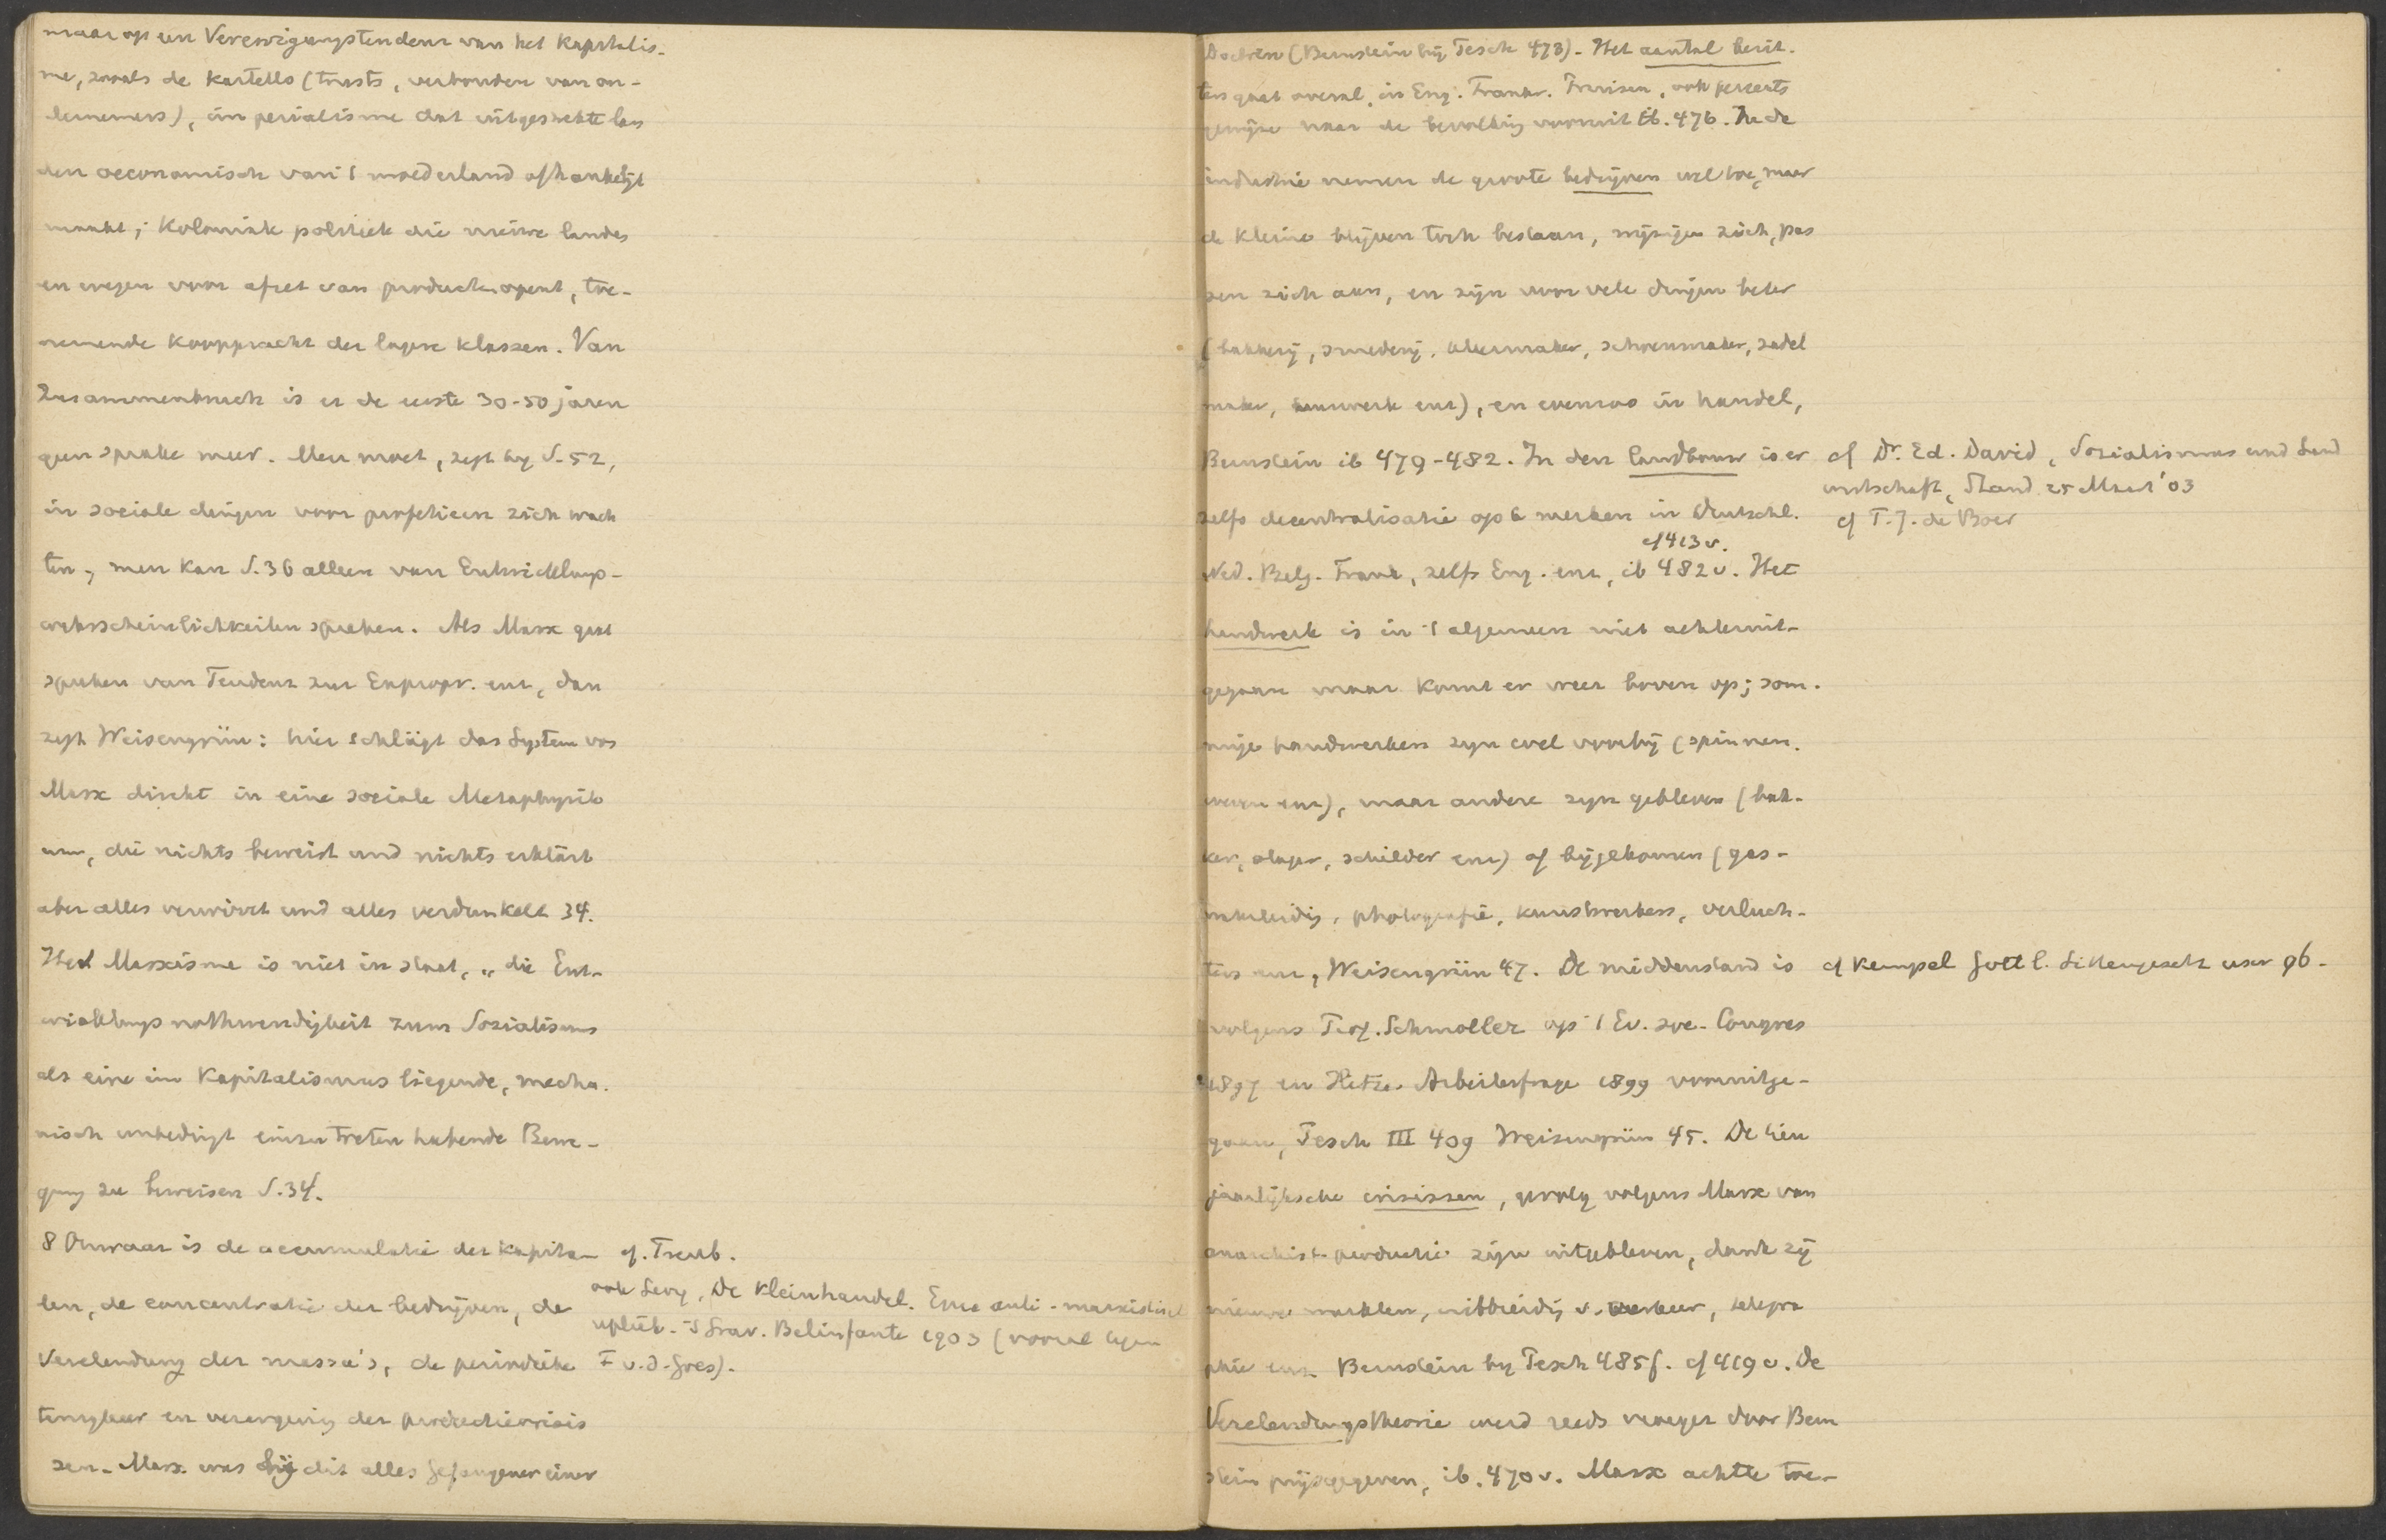 maar op een Vereenigungstendenz van het Kapitalis-
me, zooals de Kartells (trusts, verbonden van on-
dernemers), imperialisme dat uitgestrekte lan
den oeconomisch van 't moederland afhankelijk
maakt; Koloniale politiek die nieuwe landen
en wegen voor afzet van producten opent, toe-
nemende koopkracht der lagere klassen. Van
Zusammenbruch is er de eerste 30-50 jaren
geen sprake meer. Men moet, zegt hij S. 52,
in sociale dingen voor profetieen zich wach
ten, men kan S. 36 alleen van Entwicklungs-
wahrscheinlichkeiten spreken. Als Marx gaat
spreken van Tendenz zur Expropr. enz, dan
zegt Weisengrün: hier schlägt das System von
Marx direkt in eine sociale Metaphysik
um, die nichts beweist und nichts erklärt
aber alles verwirrt und alles verdunkelt 34.
Het Marxisme is niet in staat, „die Ent-
wicklungsnothwendigkeit zum Sozialismus
als eine im Kapitalismus liegende, mecha-
nisch unbedingt einzutreten habende Bewe-
gung zu beweisen S. 34.
8 Onwaar is de accumulatie der Kapita- cf. Treub.
len, de concentratie der bedrijven, de
ook Levy, De Kleinhandel. Eene anti-marxistisch
uplieb. 's Grav. Belinfante 1903 (vooral tegen
Verelendung der massa's, de periodieke F v. d. Goes).
terugkeer en verergering der productiecrisis
sen. Marx was bij dit alles Gefangener einer
Doctrin (Bernstein bij Pesch 473). Het aantal bezit-
ters gaat overal, in Eng. Frankr. Pruisen, ook percents
gewijze naar de bevolking vooruit ib. 476. In de
industrie nemen de groote bedrijven wel toe, maar
de kleine blijven toch bestaan, wijzigen zich, pas
sen zich aan, en zijn voor vele dingen beter
(bakkerij, smederij, schoenmaker, zadel
maker, enz), en evenzoo in handel,
Bernstein ib 479-482. In den landbouw is er
cf Dr. Ed. David, Sozialismus und Land
wirtschaft, Stand. 25 Maart '03
cf T. J. de Boer
zelfs decentralisatie op te merken in Deutschl.
cf 413 v.
Ned. Belg. Frank, zelfs Eng. enz, ib 482 v. Het
handwerk is in 't algemeen niet achteruit-
gegaan maar komt er weer boven op; som-
mige handwerken zijn wel voorbij (spinnen,
weven enz), maar andere zijn gebleven (bak-
ker, slager, schilder enz) of bijgekomen (gas-
photografie, kunstwerken, verluch-
ters enz, Weisengrün 47. De middenstand is
cf Kempel Göttl. Sittengesetz usw 96-
volgens Prof. Schmoller op 't Ev. soc. Congres
1897 en Hitze Arbeiterfrage 1899 vooruitge-
gaan, Pesch III 409 Weisengrün 45. De tien
jaarlijksche crisissen, gevolg volgens Marx van
anarchist. productie zijn uitgebleven, dank zij
nieuwe markten, uitbreiding v. verkeer, telegra
phie enz. Bernstein bij Pesch 485 f. cf 419 v. De
Verelendungstheorie werd reeds vroeger door Bern
stein prijsgegeven, ib. 470 v. Marx achtte toe-